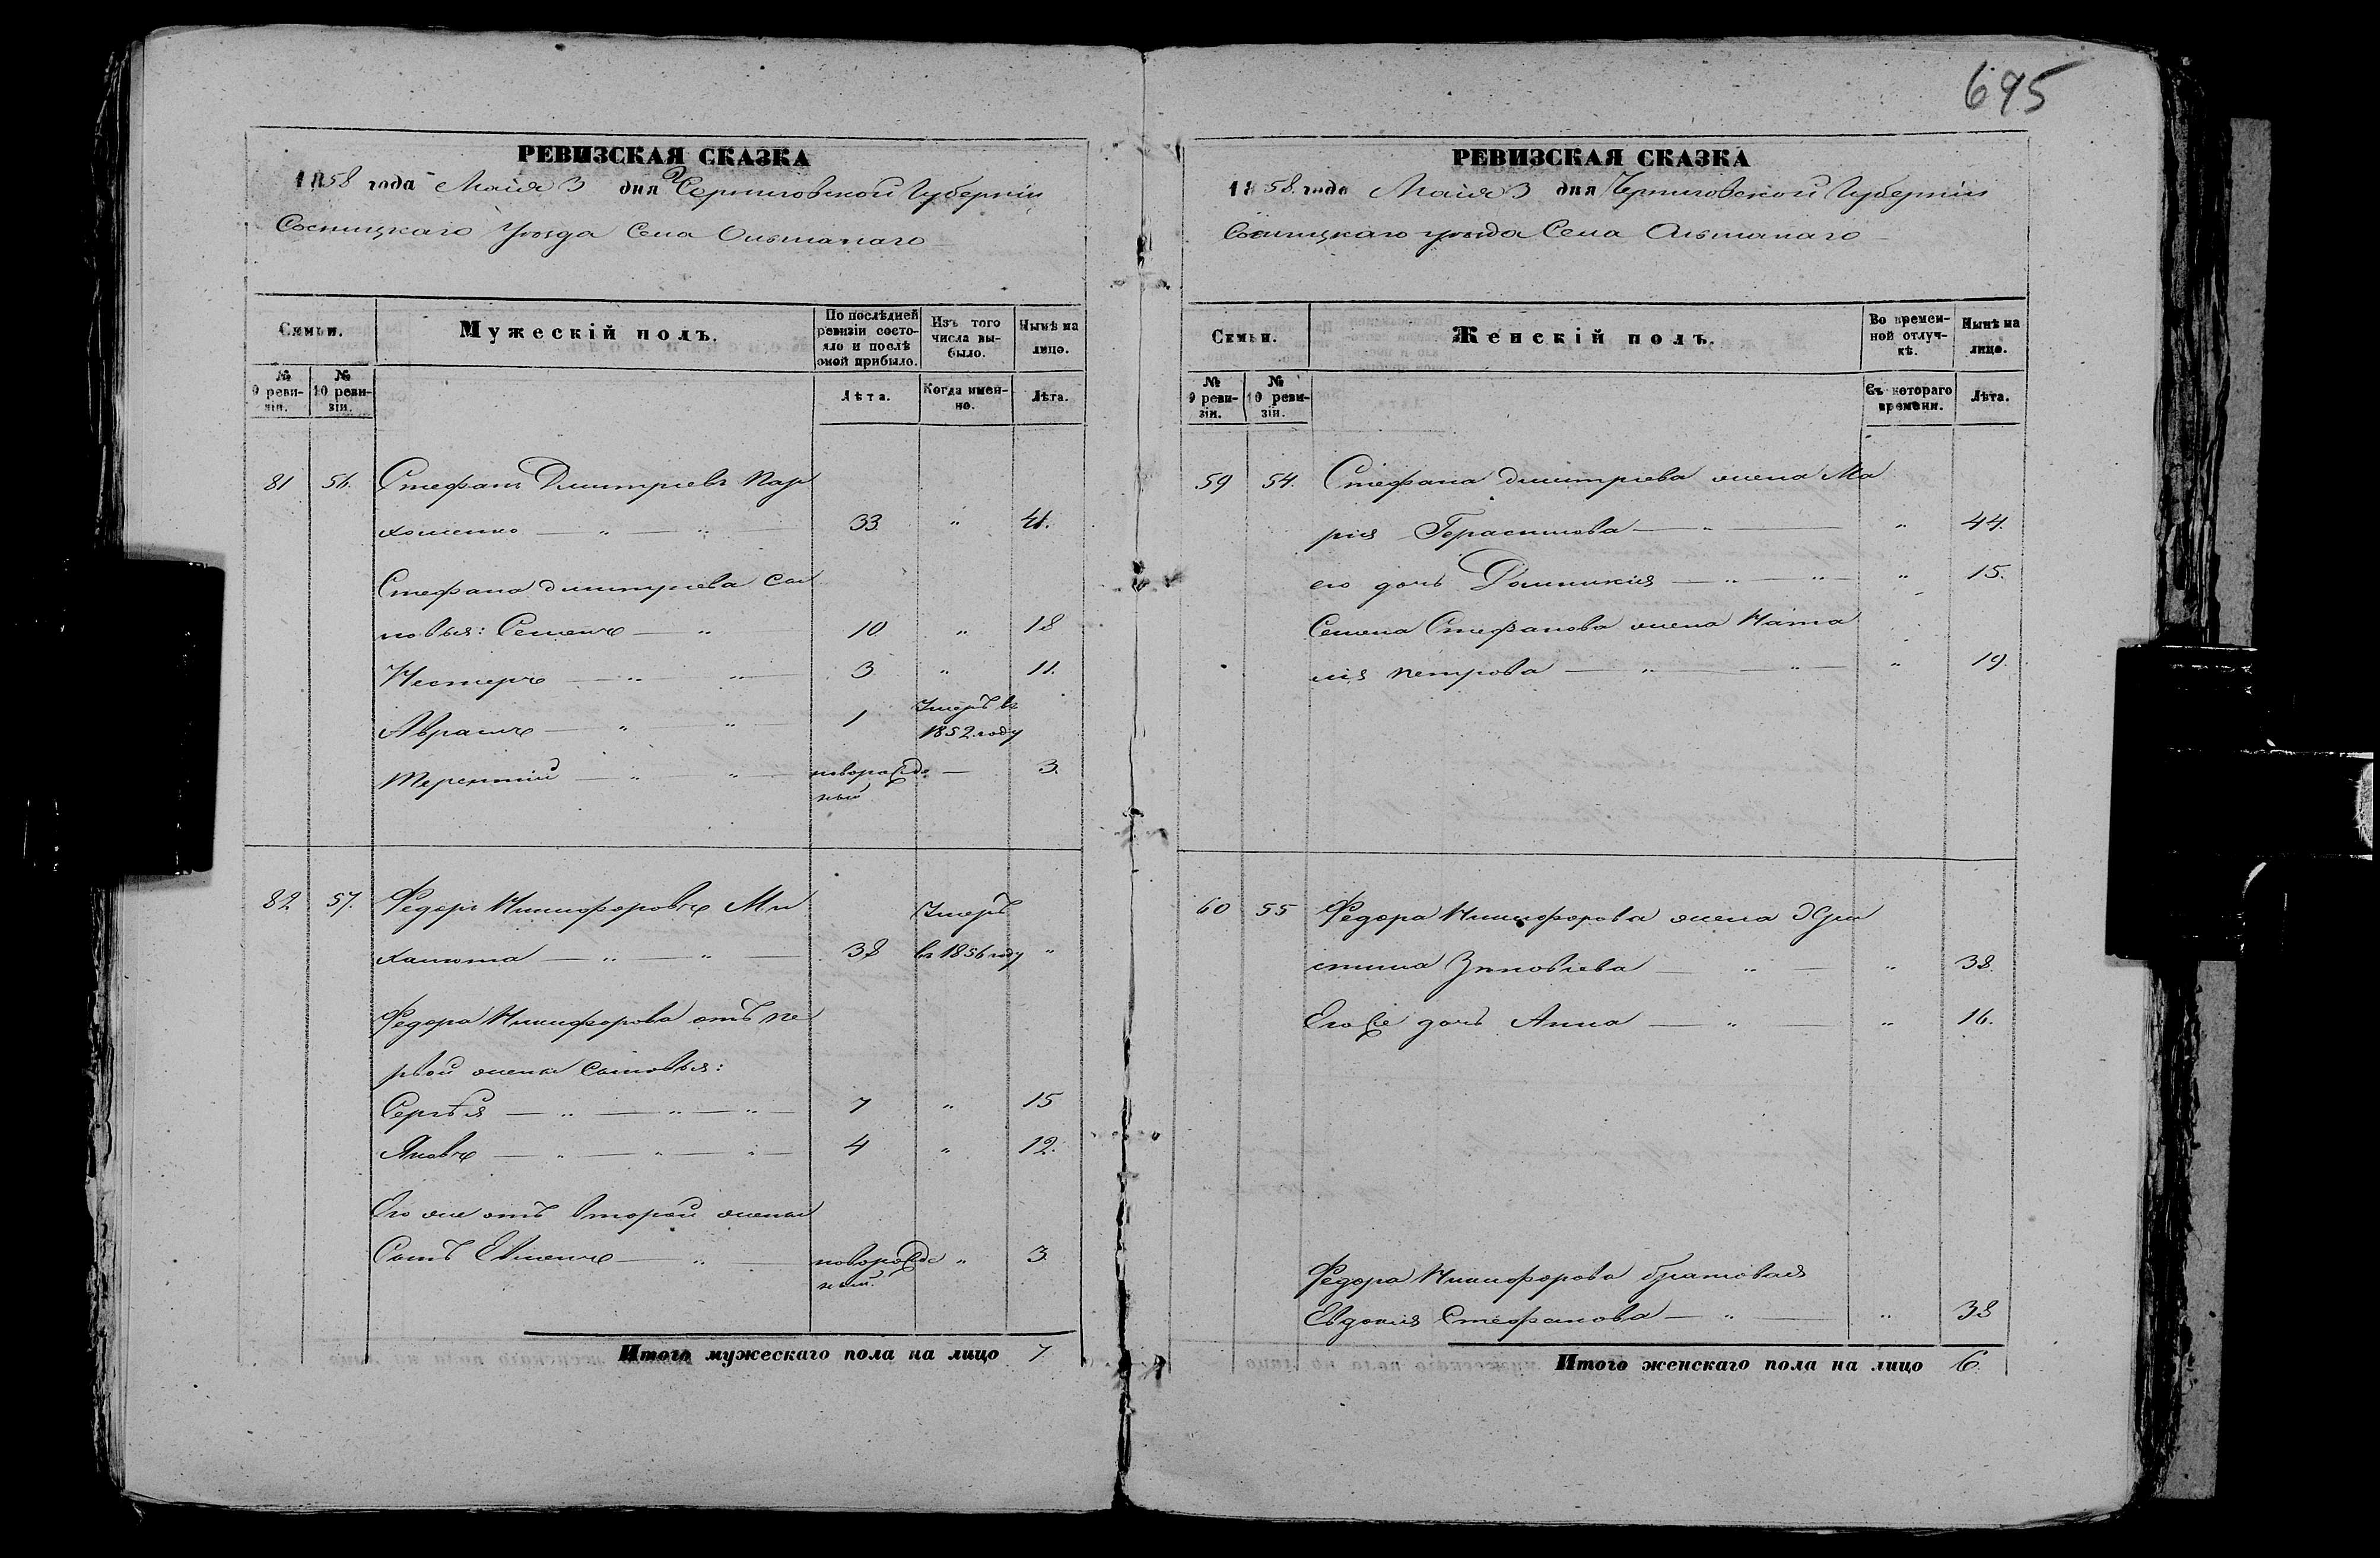 695
РЕВИЗСКАЯ СКАЗКА
1858 года Маія 3 дня Черниговской Губерніи
Сосницкаго Уѣзда Села Ольшанаго
Семьи.
Мужескій полъ.
По послѣдней ревизіи состояло и послѣ оной прибыло.
Изъ того числа выбыло.
Нынѣ на лицо.
№ 9 ревизіи.
№ 10 ревизіи.
Лѣта.
Когда именно.
Лѣта.
81 56. Стефанъ Дмитріевъ Пар
хоменко — " — " 33. " 41.
Стефана Дмитріева сы
новья: Семенъ — " 10 " 18
Нестеръ — " " 3 " 11.
Аврамъ — " " 1 Умеръ въ 1852 году
Терентій — " " новорожденный — 3.
82 57. Федоръ Никифоровъ Ми
халюта — " — " — 38 Умеръ въ 1856 году "
Федора Никифорова отъ пе
рвой жены сыновья:
Сергѣй — " — " — " — 7 " 15
Яковъ — " — " — " — 4 " 12.
Его же отъ второй жены
Сынъ — " — новорожденный. " 3.
Итого мужескаго пола на лицо 7
РЕВИЗСКАЯ СКАЗКА
1858 года Маія 3 дня Черниговской Губерніи
Сосницкаго уѣзда Села Ольшанаго
Семьи.
Женскій полъ.
Во временной отлучкѣ.
Нынѣ на лицо.
№ 9 ревизіи.
№ 10 ревизіи.
Съ котораго времени.
Лѣта.
59 54. Стефана Дмитріева жена Ма
рія Герасимова — " — " 44.
его дочь Домникія — " " — " 15.
Семена Стефанова жена Ната
лія Петрова — " — " — " 19.
60 55 Федора Никифорова жена Хри
стина Зиновіева — " — " 38.
Его же дочь Анна — " — " 16.
Федора Никифорова братовая
Евдокія Стефанова — " — " 38
Итого женскаго пола на лицо 6.